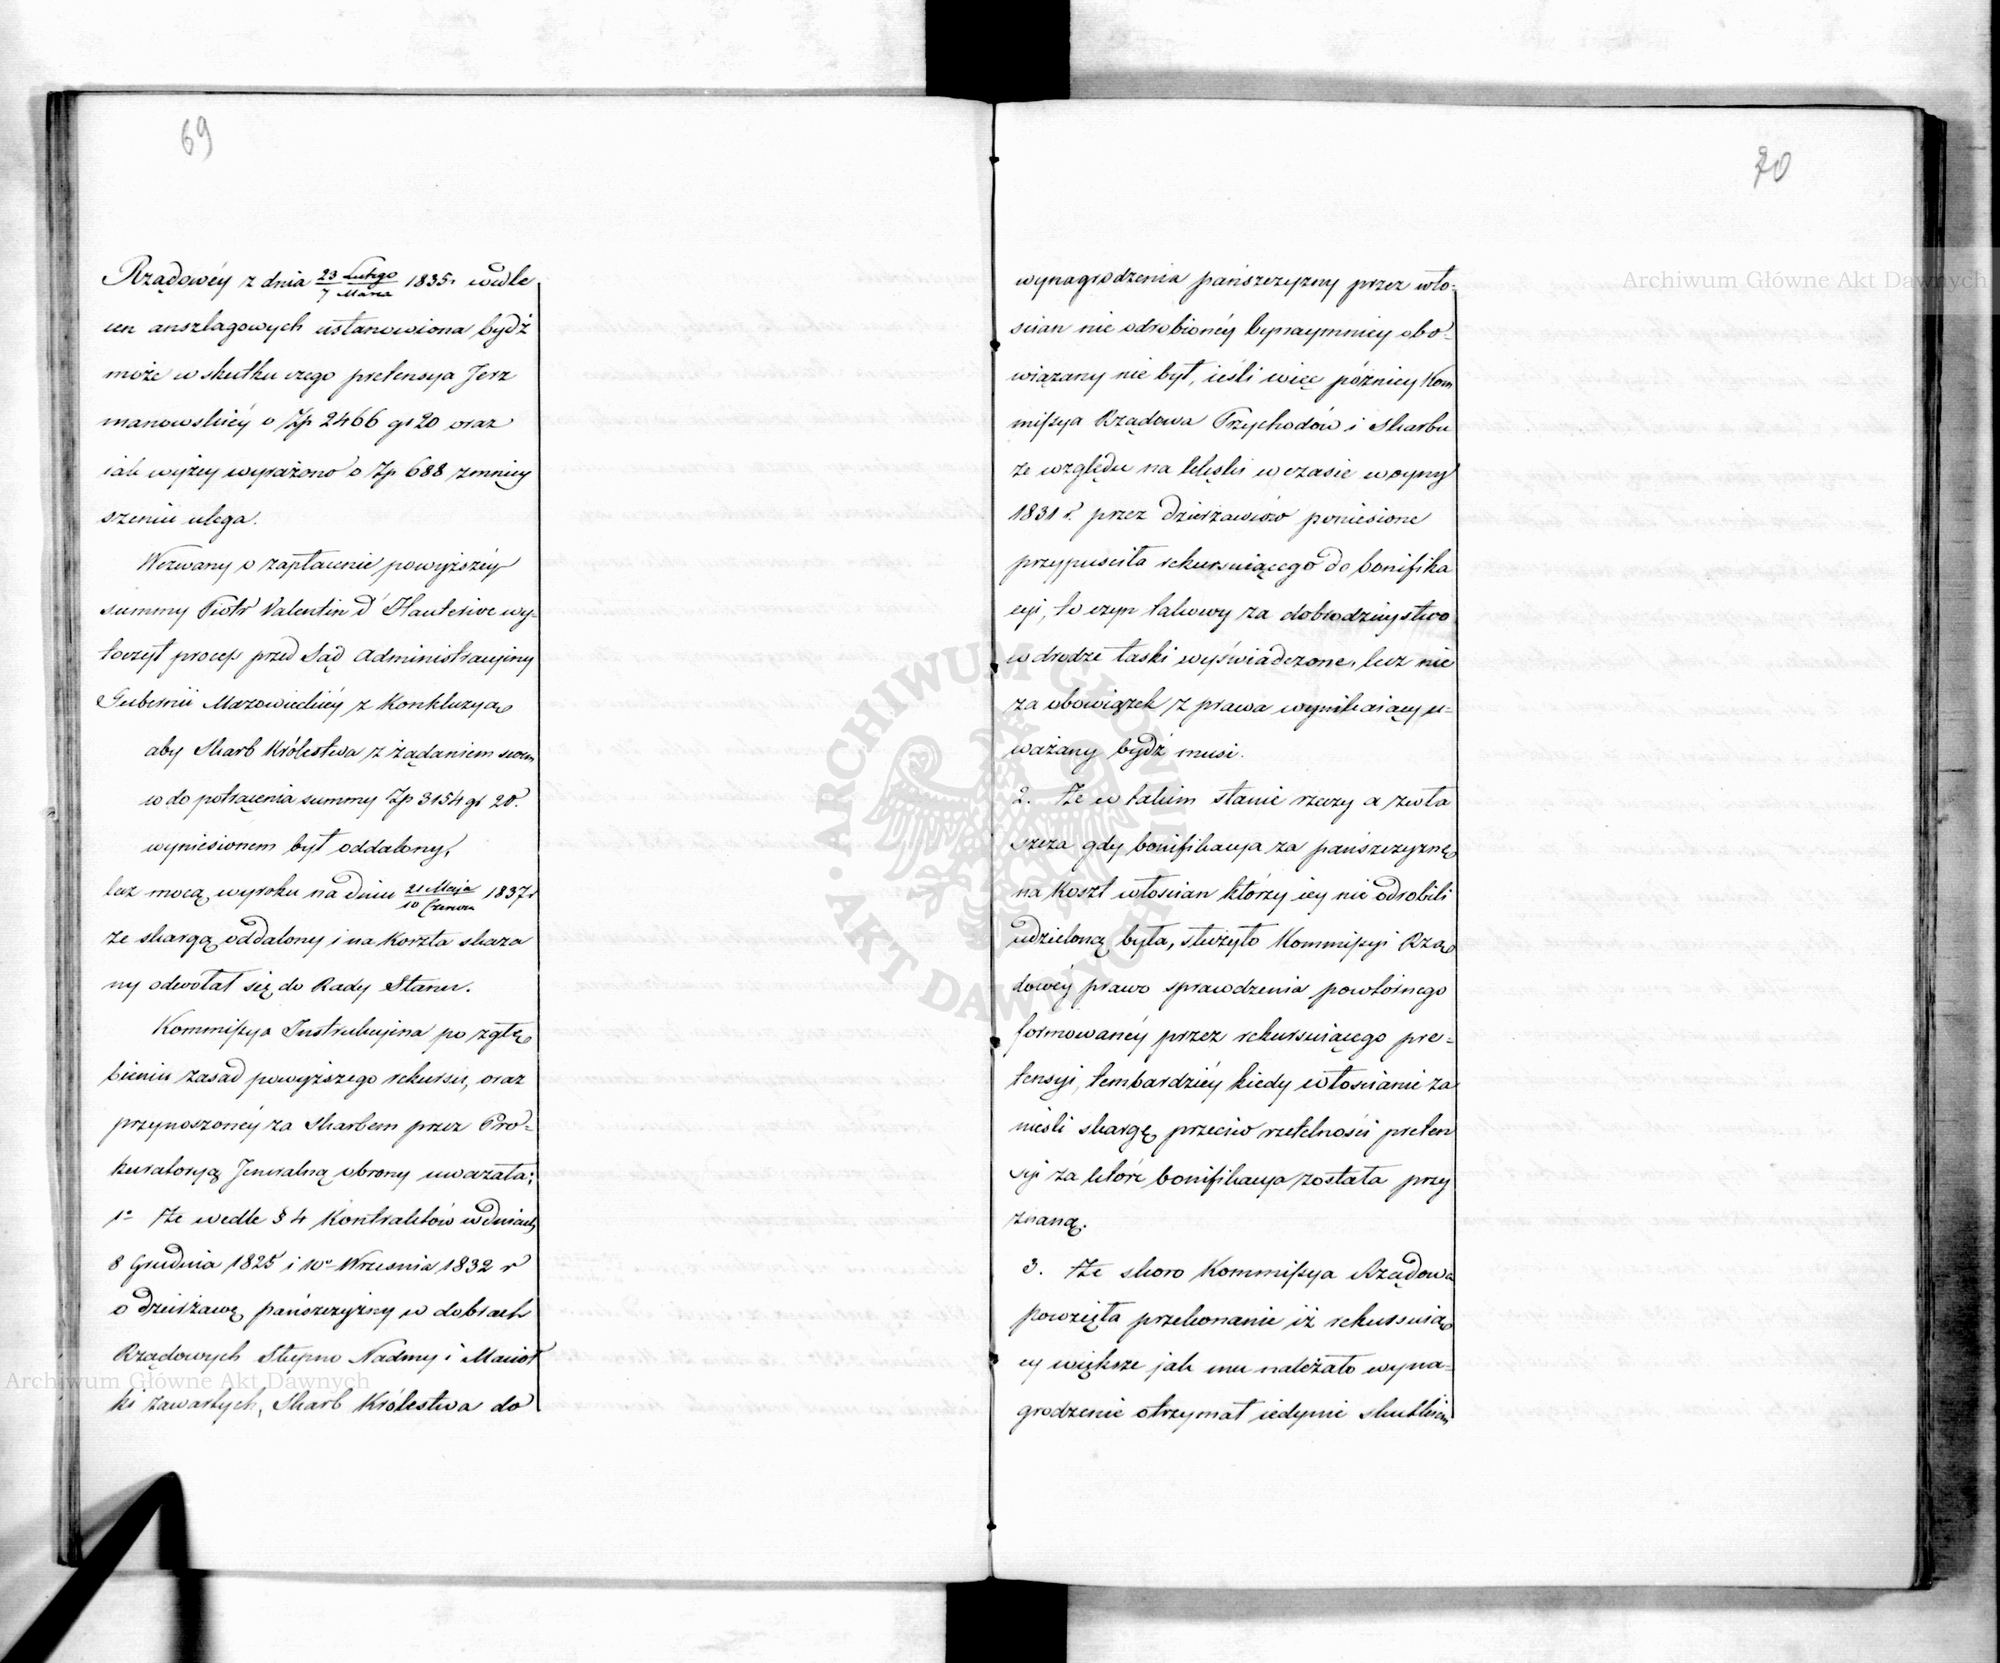 69
Rządowéy z dnia 23 Lutego / 7 Marca 1835 r wedle
cen anszlagowych ustanowiona bydź
może w skutku czego pretensya Jerz
manowskiéy o Złp 2466 gr 20 oraz
iak wyżey wyrażono o Złp 688 zmniey
szeniu ulega.
Wezwany o zapłacenie powyższéy
summy Piotr Valentin d'Hauterive wy-
toczył process przed Sąd Administracyiny
Gubernii Mazowieckiéy z Konkluzyą
aby Skarb Królestwa z żądaniem swem
co do potrącenia summy Złp 3154 gr 20.
wyniesionem był oddalony,
lecz mocą wyroku na dniu 21 Maja / 10 Czerwca 1837 r
ze skargą oddalony i na Koszta skaza
ny odwołał się do Rady Stanu.
Kommissya Instrukcyina po zgłę
bieniu zasad powyższego rekursu, oraz
przynoszonéy za Skarbem przez Pro-
kuratoryą Jeneralną obrony uważała;
1o Że wedle § 4 Kontraktów w dniach
8 Grudnia 1825 i 10o Września 1832 r
o dzierżawę pańszczyzny w dobrach
Rządowych Stupno Nadmy i Macioł
ki zawartych, Skarb Królestwa do
70
wynagrodzenia pańszczyzny przez wło-
ścian nie odrobionéy bynaymniey obo-
wiązany nie był, ieśli więc późniey Kom
missya Rządowa Przychodów i Skarbu
ze względu na klęski w czasie woyny
1831 r. przez dzierżawców poniesione
przypuściła rekursuiącego do bonifika
cyi, to czyn takowy za dobrodzieystwo
w drodze łaski wyświadczone, lecz nie
za obowiązek z prawa wynikaiący u-
ważany bydź musi.
2. Że w takim stanie rzeczy a zwła
szcza gdy bonifikacya za pańszczyznę
na Koszt włościan którzy iey nie odrobili
udzieloną była, służyło Kommissyi Rzą
dowéy prawo sprawdzenia powtórnego
formowanéy przez rekursuiącego pre-
tensyi, tembardziéy kiedy włościanie za
nieśli skargę przeciw rzetelności preten
syi za które bonifikacya została przy
znaną.
3. Że skoro Kommissya Rządowa
powzięła przekonanie iż rekursuią
cy większe jak mu należało wyna-
grodzenie otrzymał iedynie skutkiem
Archiwum Główne Akt Dawnych
Archiwum Główne Akt Dawnych
ARCHIWUM GŁÓWNE · AKT DAWNYCH